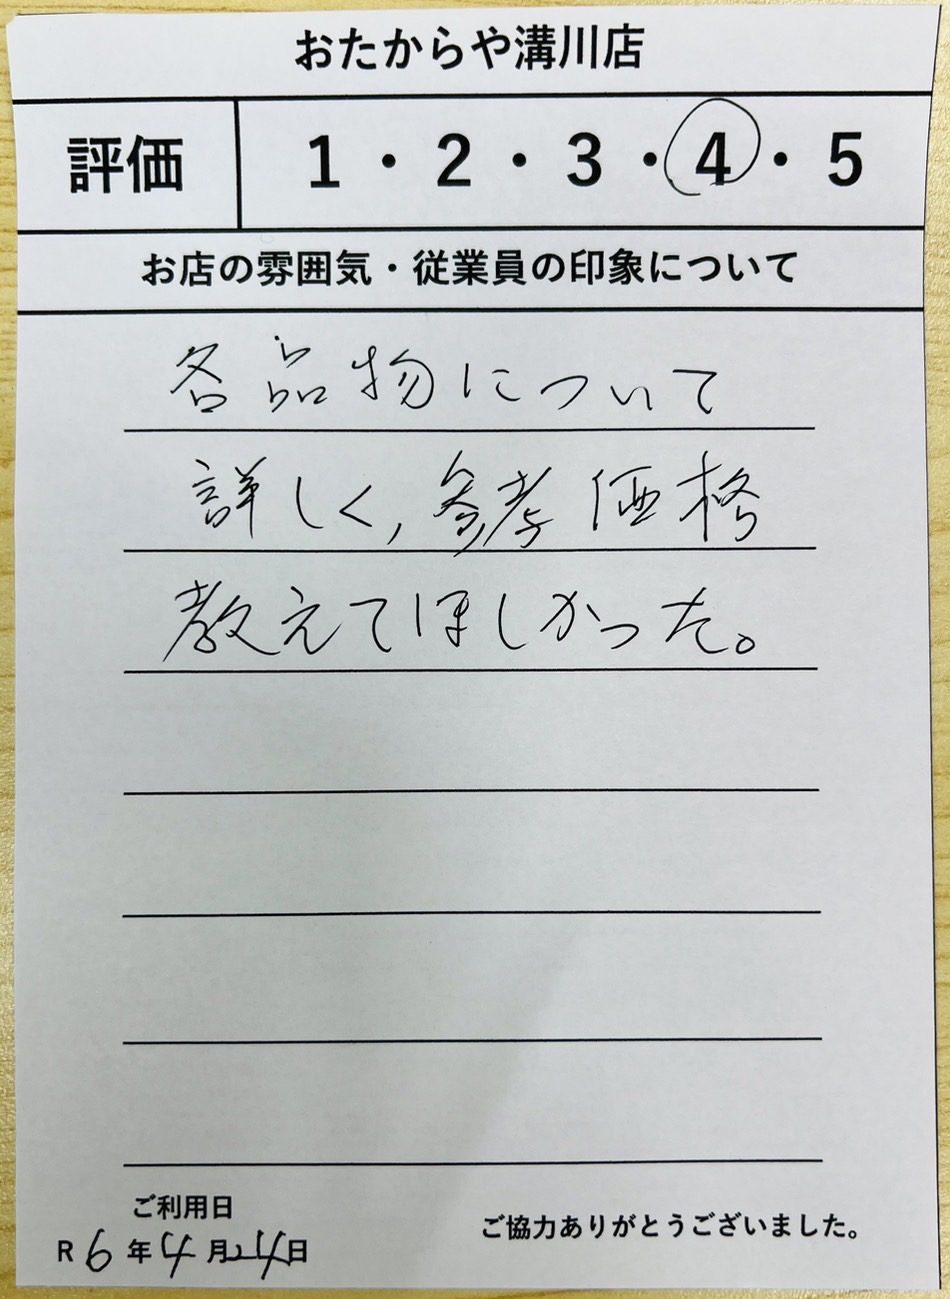 おたからや溝川店
評価 1・2・3・4・5
お店の雰囲気・従業員の印象について
各品物について
詳しく,参考価格
教えてほしかった。
ご利用日
R6年4月24日
ご協力ありがとうございました。